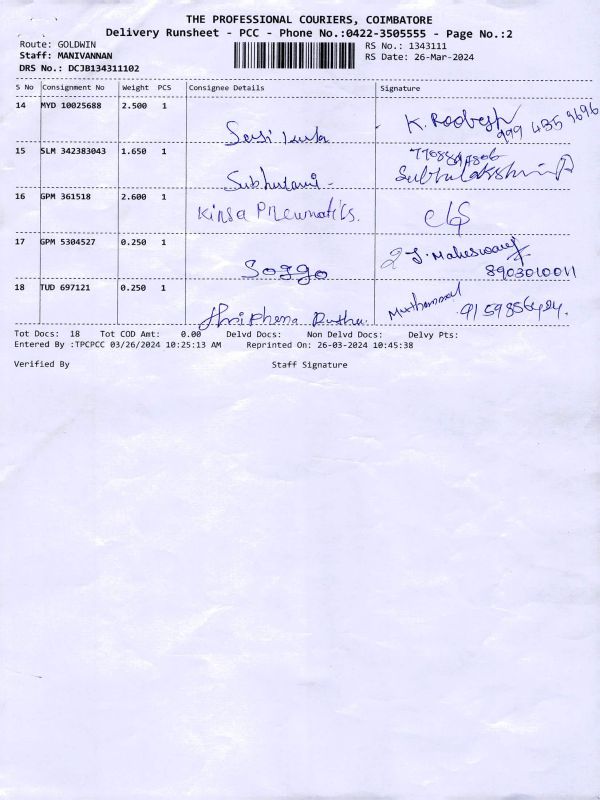 THE PROFESSIONAL COURIERS, COIMBATORE
Delivery Runsheet - PCC - Phone No.:0422-3505555 - Page No.:2
Route: GOLDWIN
RS No.: 1343111
Staff: MANIVANNAN
RS Date: 26-Mar-2024
DRS No.: DCJB134311102
S No Consignment No Weight PCS Consignee Details Signature
14 MYD 10025688 2.500 1
K. Roobesh
999 435 9696
15 SLM 342383043 1.650 1
Subhulakshmi
16 GPM 361518 2.600 1 Kinsa Pneumatics.
17 GPM 5304527 0.250 1
J. Maheswari
Soggo
8903010011
18 TUD 697121 0.250 1
Muthammal
Tot Docs: 18 Tot COD Amt: 0.00 Delvd Docs: Non Delvd Docs: Delvy Pts:
Entered By :TPCPCC 03/26/2024 10:25:13 AM Reprinted On: 26-03-2024 10:45:38
Verified By Staff Signature